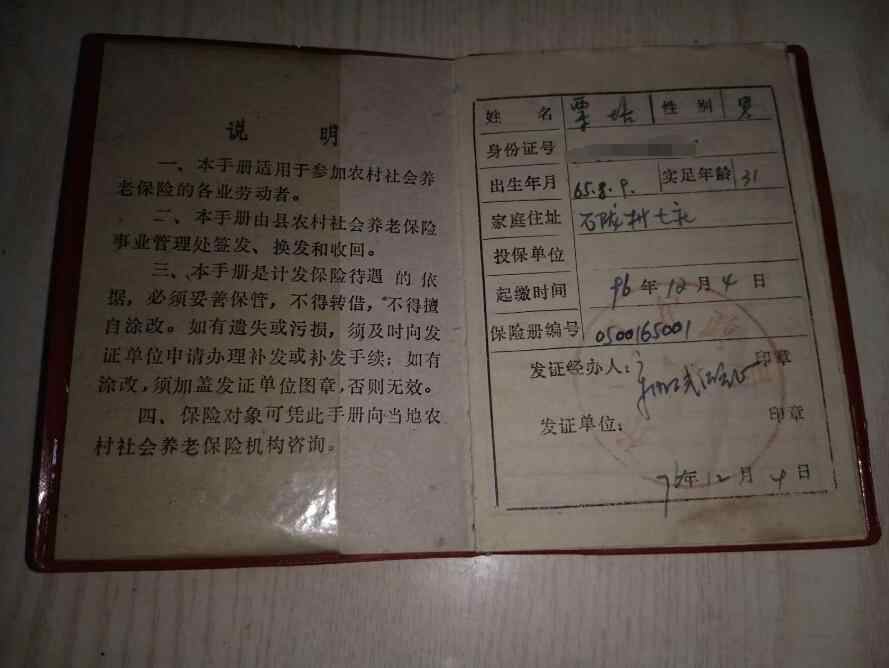 说 明
一、本手册适用于参加农村社会养
老保险的各业劳动者。
二、本手册由县农村社会养老保险
事业管理处签发、换发和收回。
三、本手册是计发保险待遇的依
据，必须妥善保管，不得转借，不得擅
自涂改。如有遗失或污损，须及时向发
证单位申请办理补发或补发手续；如有
涂改，须加盖发证单位图章，否则无效。
四、保险对象可凭此手册向当地农
村社会养老保险机构咨询。
姓 名 性 别 男
身份证号
出生年月 65.8.9. 实足年龄 31
家庭住址 石陇村
投保单位
起缴时间 96年12月4日
保险册编号 0500165001
发证经办人： 印章
发证单位： 印章
96年12月4日